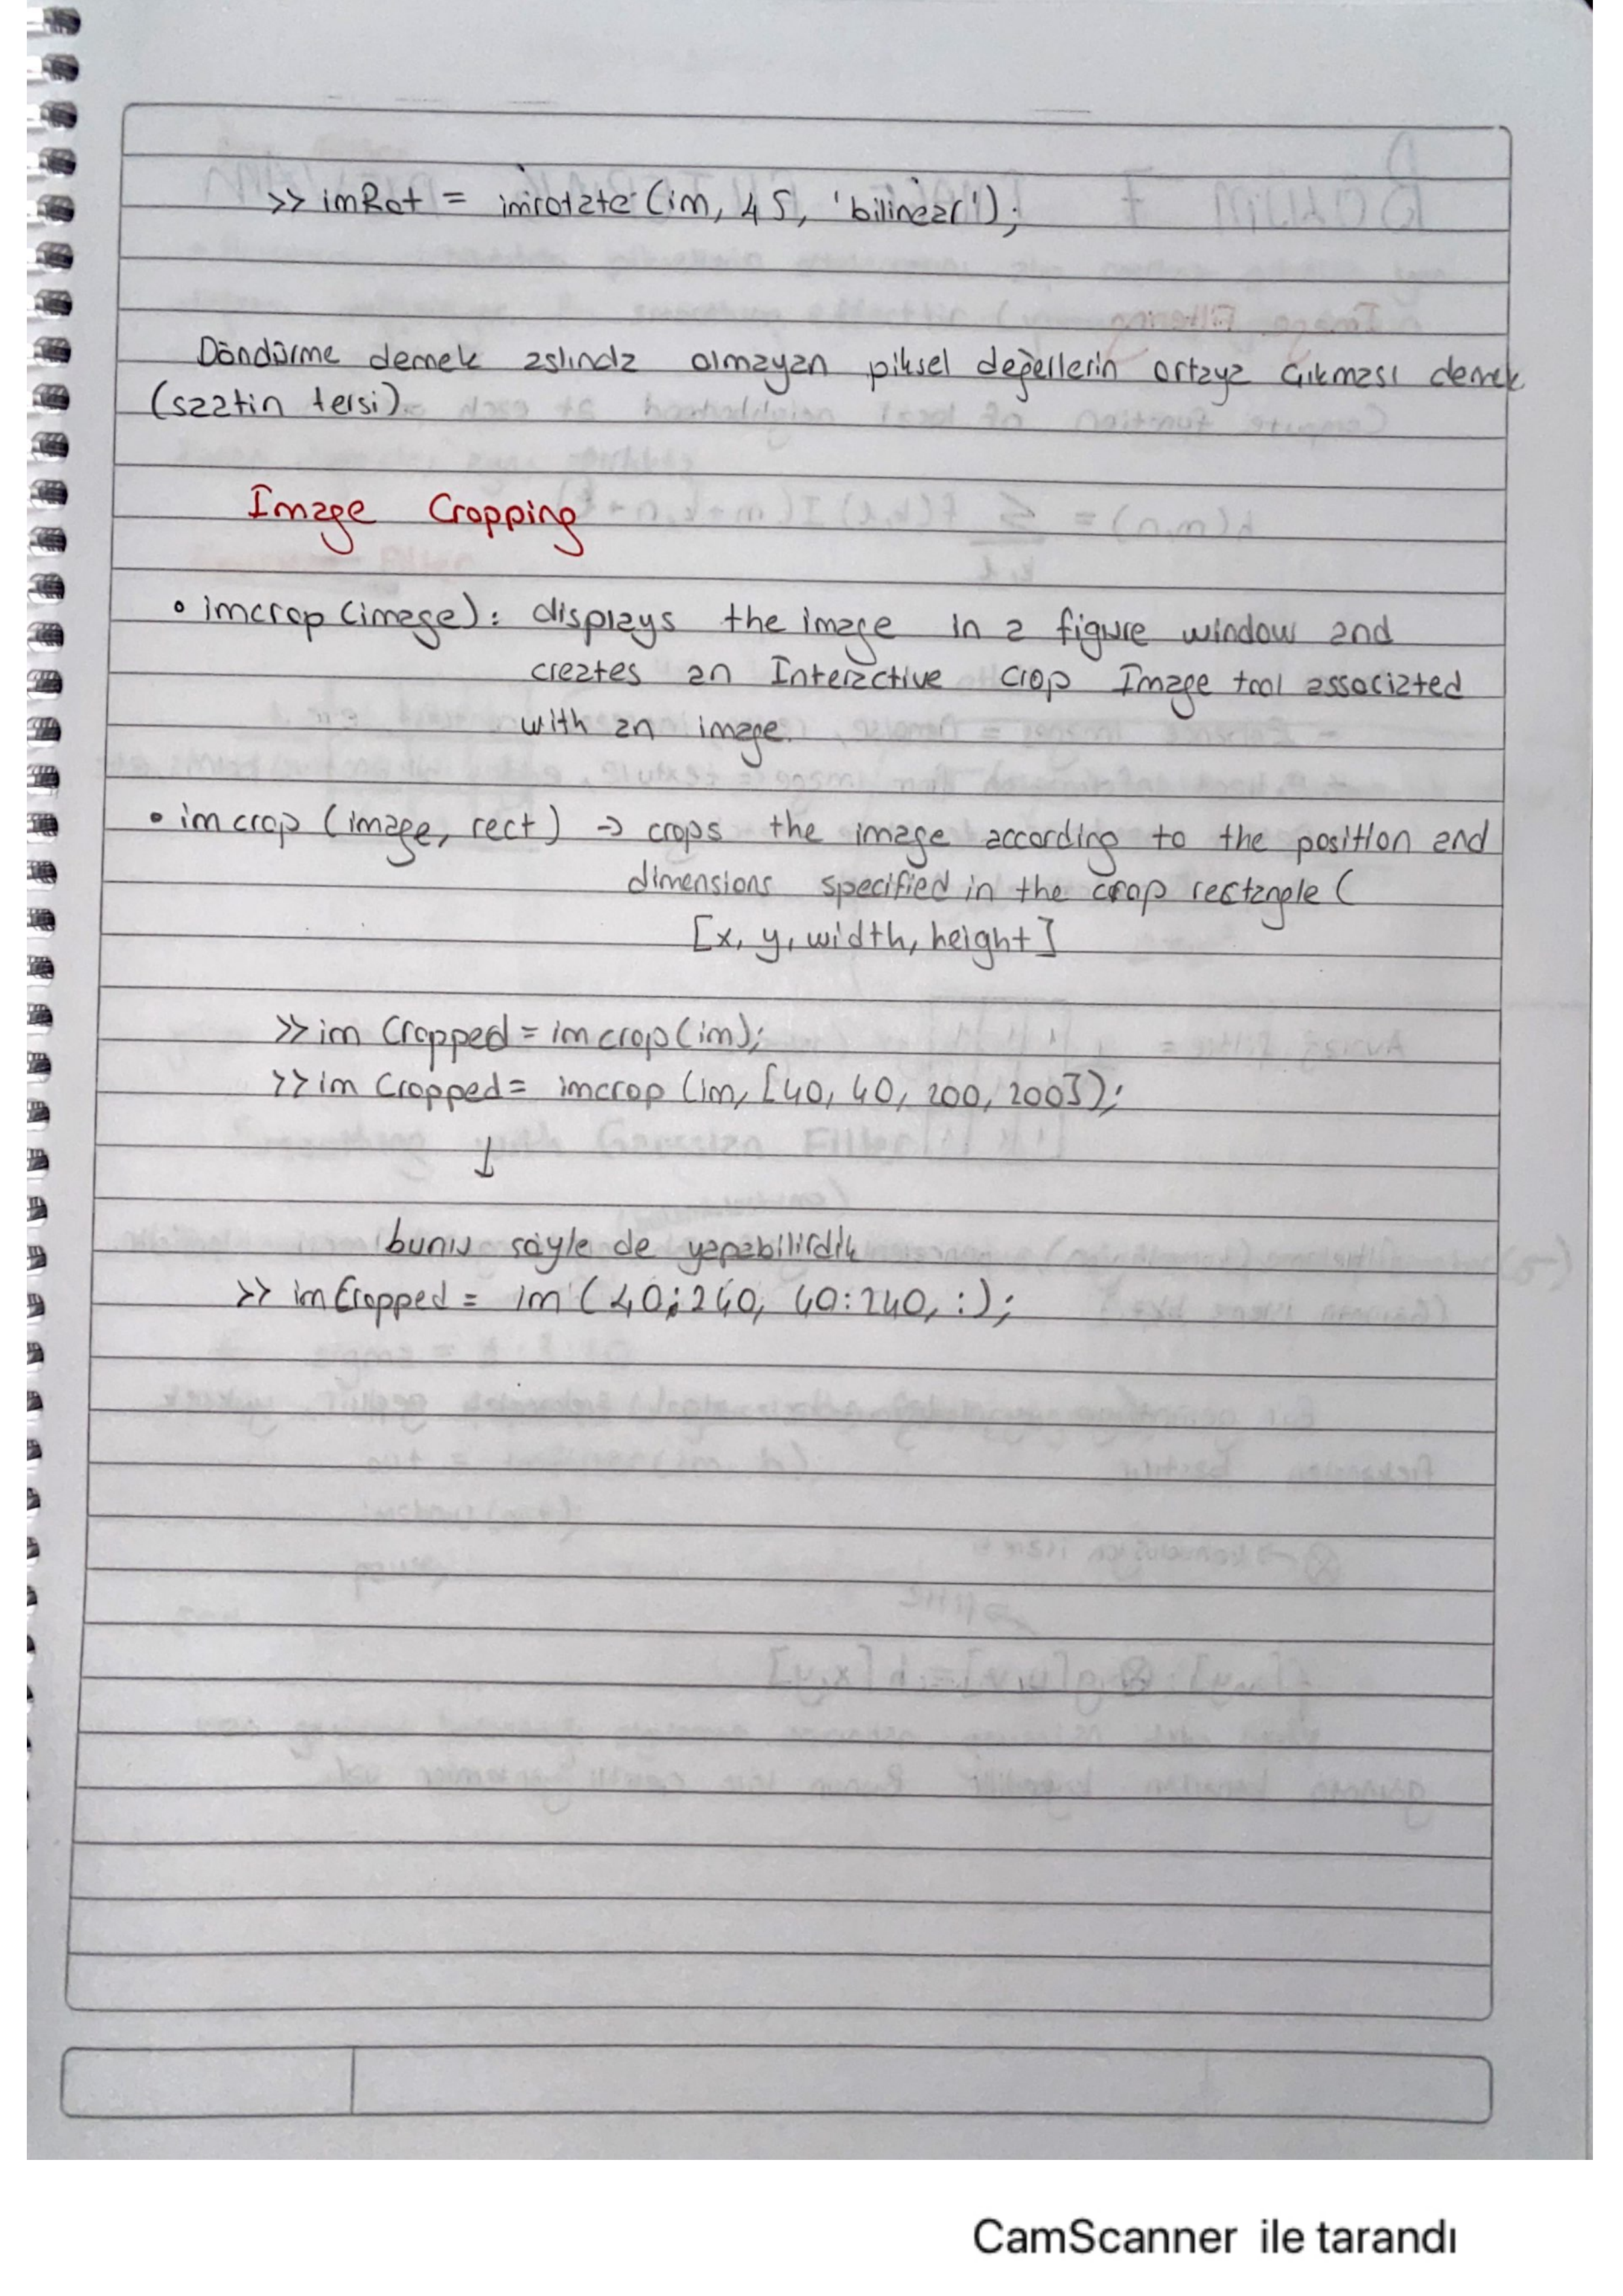 >> imRot = imrotate (im, 45, 'bilinear');
Döndürme demek aslında olmayan piksel değellerin ortaya çıkması demek
(saatin tersi).
Image Cropping
• imcrop (image): displays the image in a figure window and
creates an Interactive crop Image tool associated
with an image.
• imcrop (image, rect) → crops the image according to the position and
dimensions specified in the crop rectangle (
[x, y, width, height]
>> im Cropped = imcrop (im);
>> im Cropped = imcrop (im, [40, 40, 200, 200]);
↓
bunu söyle de yapabilirdik
>> imCropped = im (40:240, 40:240, :);
CamScanner ile tarandı